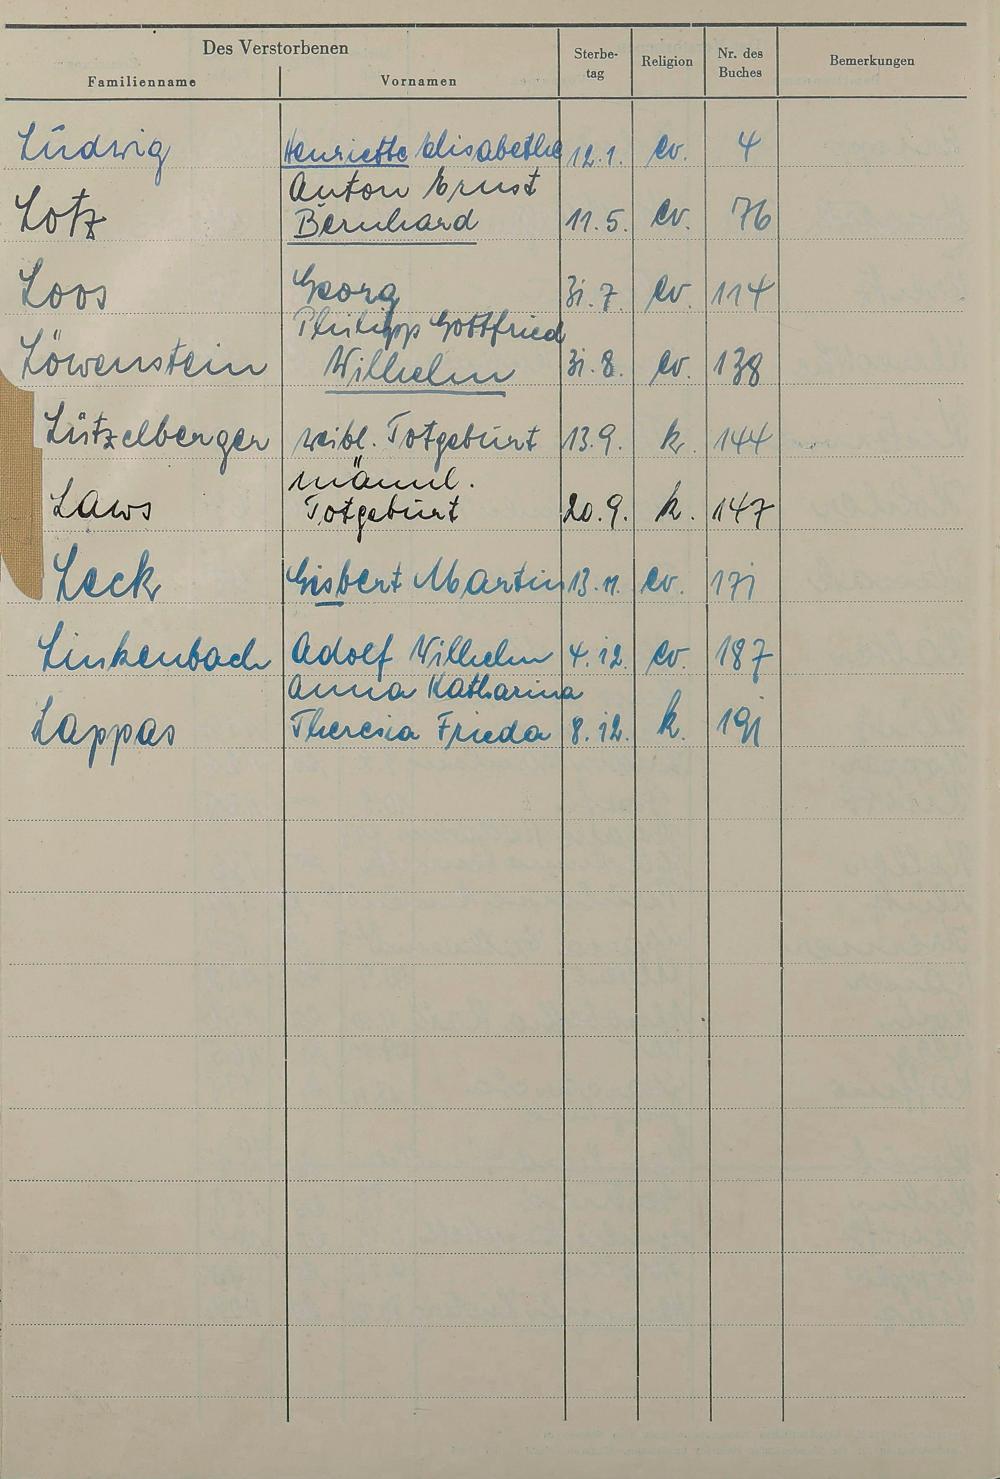 Des Verstorbenen
Familienname Vornamen Sterbe-tag Religion Nr. des Buches Bemerkungen
Lūdwig Henriette Elisabethe 12.1. ev. 4
Anton Ernst
Lotz Bernhard 11.5. ev. 76
Loos Georg 31.7. ev. 114
Philipp Gottfried
Löwenstein Wilhelm 31.8. ev. 138
Lützelberger weibl. Totgebūrt 13.9. k. 144
männl.
Laws Totgebūrt 20.9. k. 147
Leck Gisbert Martin 13.11. ev. 171
Linkenbach Adolf Wilhelm 4.12. ev. 187
Anna Katharina
Lappas Theresia Frieda 8.12. k. 191